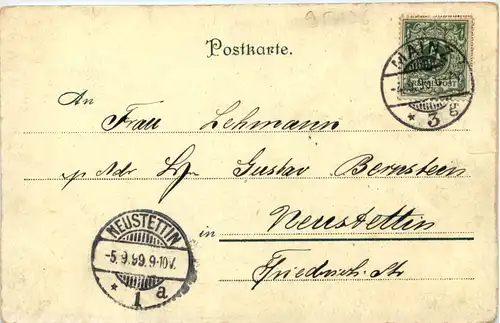 Postkarte.
MAINZ
* 3 g
An
Frau Lehmann
p Adr Gustav Bernstein
in Neustettin
Friedrich Str
NEUSTETTIN
-5.9.99.9-10V.
* 1 a